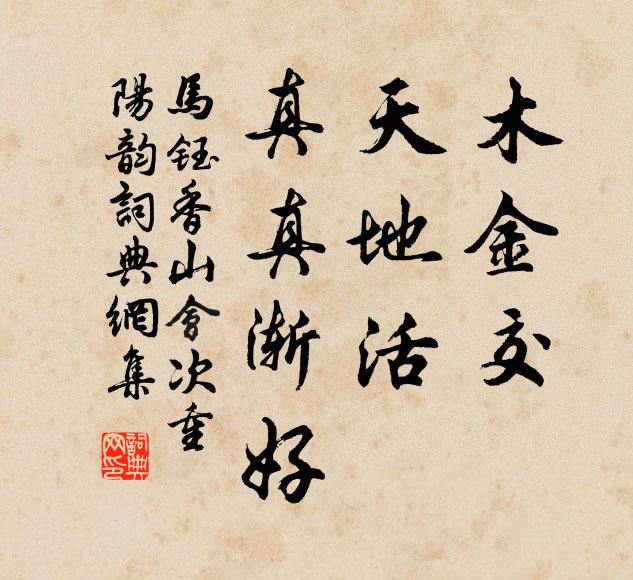 木金交
天地活
真真渐好
馬鈺香山會次重
陽韵詞典網集
詞典网印